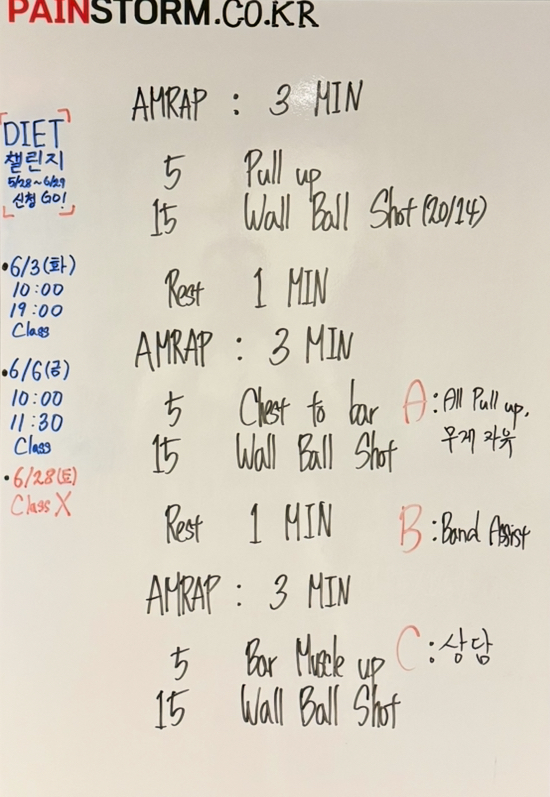 PAINSTORM.CO.KR
DIET
챌린지
5/28~6/29
신청 GO!
•6/3(화)
10:00
19:00
Class
•6/6(금)
10:00
11:30
Class
•6/28(토)
Class X
AMRAP : 3 MIN
5 Pull up
15 Wall Ball Shot (20/14)
Rest 1 MIN
AMRAP : 3 MIN
5 Chest to bar
15 Wall Ball Shot
Rest 1 MIN
AMRAP : 3 MIN
5 Bar Muscle up
15 Wall Ball Shot
A : All Pull up,
무게 자유
B : Band Assist
C : 상담